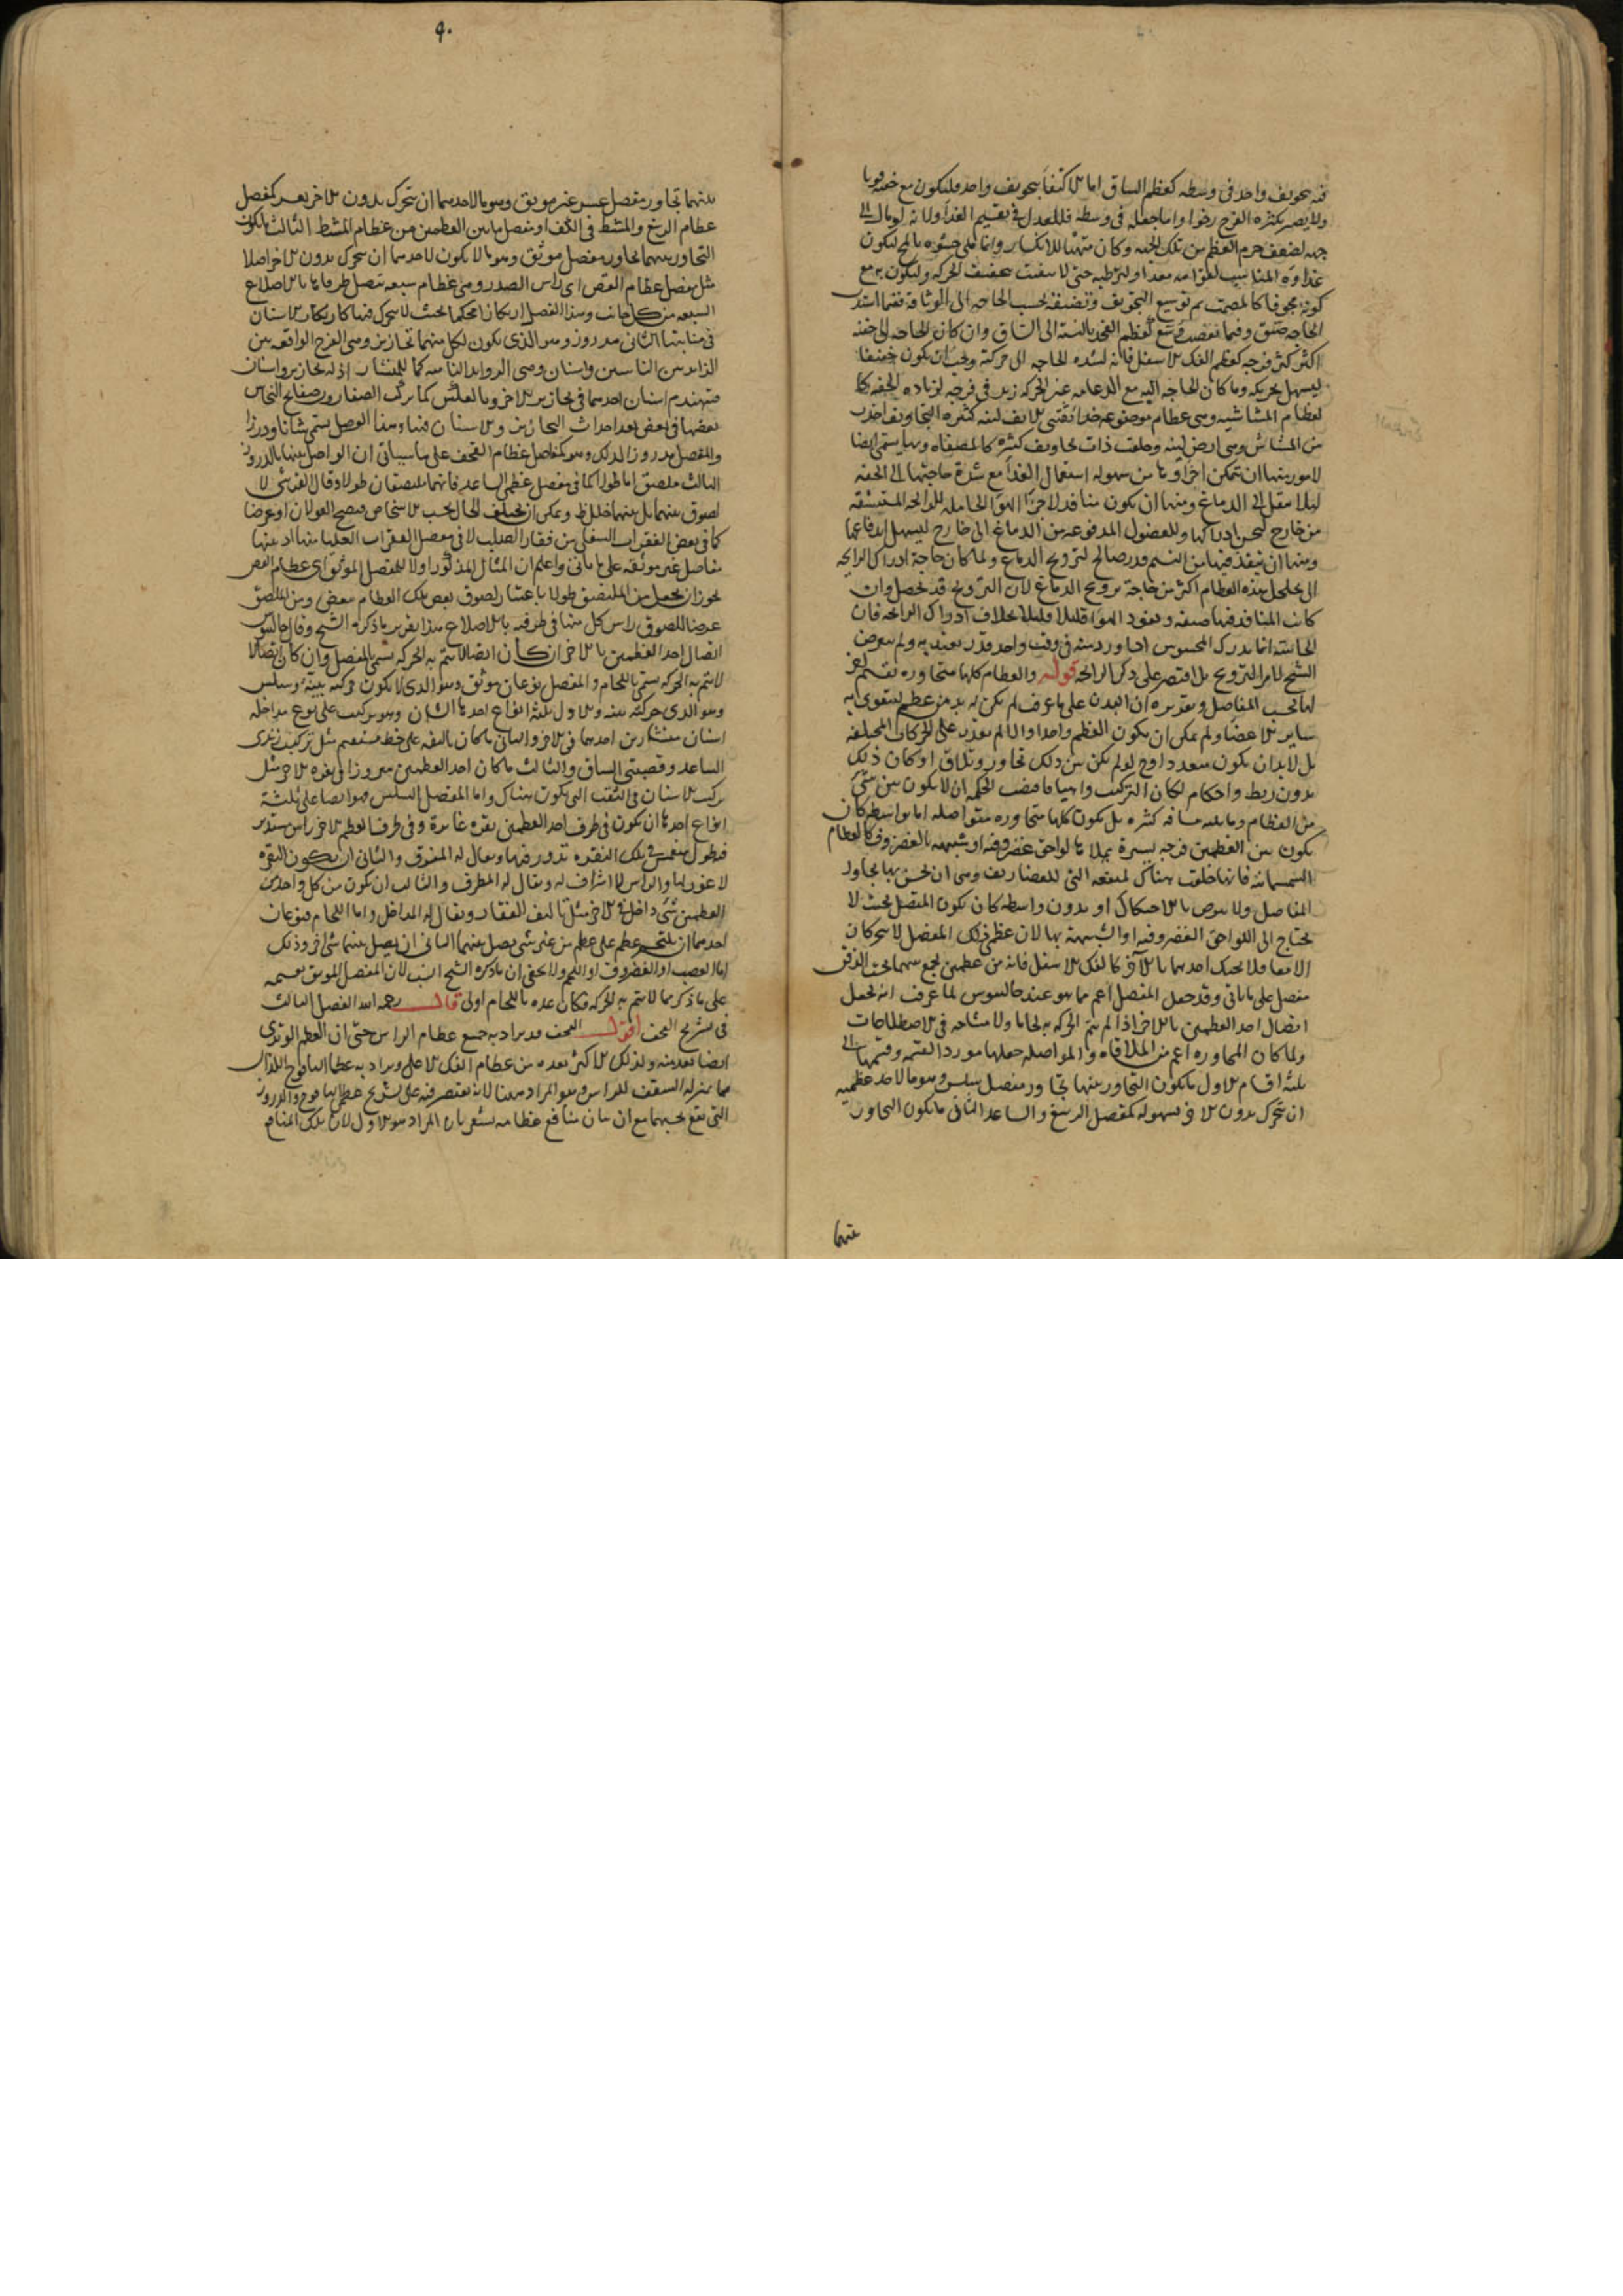 فيه تجويف واحد في وسطه كعظم الساق اما الاكتفا بتجويف واحد فليكون مع خفته قويا
ولا يصير بكثرة الفرج رخوا واما جعله في وسطه فللعدل في تقسيم الغذا ولانه لو مال الى
جهة لضعف جرم العظم من تلك الجهة وكان متهيئا للانكسار وانما ملئ حشوه بالمخ ليكون
غذاؤه المناسب لقوامه معدا وليرطبه حتى لا يتفتت بتجفيف الحركة وليكون مع
كونه مجوفا كالمصمت ثم توسيع التجويف وتضييقه بحسب الحاجة الى الوثاقة ففيما اشتدت
الحاجة ضيق وفيما نقصت وسع كعظم الفخذ بالنسبة الى الساق وان كان الحاجة الى خفته
اكثر كثر فرجه كعظم الفك الاسفل فانه لشدة الحاجة الى حركته وجب ان يكون خفيفا
ليسهل تحريكه وما كان الحاجة اليه مع الدعامة غير الحركة زيد في فرجه لزيادة الخفة كا
لعظام المشاشية وهي عظام موضوعة حذا ثقبتي الانف لينة كثيرة التجاويف اخذت
من المشاش وهي ارض لينة وخلقت ذات تجاويف كثيرة كالمصفاة وبها يسمى ايضا
لامور منها ان تتمكن اجزاوها من سهولة استعمال الغذا مع شدة حاجتها الى الخفة
ليلا يثقل على الدماغ ومنها ان يكون منافد لاجزا الهوا الحاملة للرائحة المستنشقة
من خارج ليحسن ادراكها وللفضول المدفوعة من الدماغ الى خارج ليسهل اندفاعها
ومنها ان ينفذ فيها من النسيم قدر صالح لترويح الدماغ ولما كان حاجة ادراك الرايحة
الى تخلخل هذه العظام اكثر من حاجة ترويح الدماغ لان الترويح قد يحصل وان
كانت المنافد فيها ضيقة ونفوذ الهوا قليلا قليلا بخلاف ادراك الرائحة فان
الحاسة انما تدرك المحسوس اذا وردته في وقت واحد قدر يعتد به ولم يتعرض
الشيخ لامر الترويح بل اقتصر على ذكر الرائحة قوله والعظام كلها متجاورة تقسيم اخر
لها بحسب المفاصل وتقديره ان البدن على ما عرف لم يكن له بد من عظم ليتقوى به
ساير الاعضا ولم يمكن ان يكون العظم واحدا والا لم يقدر على الحركات المختلفة
بل لا بد ان يكون متعددا وح لو لم يكن بين ذلك تجاور وتلاق او كان ذلك
بدون ربط واحكام لكان التركيب واهيا فاقتضت الحكمة ان لا يكون بين شي
من العظام وما يليه مسافة كثيرة بل يكون كلها متجاورة متواصلة اما بواسطة كان
يكون بين العظمين فرجة يسيرة يملاها لواحق غضروفية او شبيهة بالغضروف كالعظام
السمسمانية فانها خلقت هناك لمنفعة التي للغضاريف وهي ان يحسن بها تجاور
المفاصل ولا يترض بالاحتكاك او بدون واسطة كان يكون المفصل بحيث لا
يحتاج الى اللواحق الغضروفية او الشبيهة بها لان عظمي ذلك المفصل لا يتحركان
الا معا فلا يحتك احدهما بالآخر كالفك الاسفل فانه من عظمين يجمع بينهما تحت الذقن
مفصل على ما ياتي وقد جعل المفصل اعم مما هو عند جالينوس لما عرفت انه يجعل
اتصال احد العظمين بالاخر اذا لم يتم الحركة به لحاما ولا مشاحة في الاصطلاحات
ولما كان المجاورة اعم من الملاقاة والمواصلة جعلها مورد القسمة وقسمها الى
ثلثة اقسام الاول ما يكون التجاور بينها تجاور مفصل سلس وهو ما لاحد عظميه
ان يتحرك بدون الاخر بسهولة كمفصل الرسغ والساعد الثاني ما يكون التجاور
بينهما
٩٠
بينهما تجاور مفصل عسر غير موثق وهو ما لاحدهما ان يتحرك بدون الاخر بعسر كمفصل
عظام الرسغ والمشط في الكف او مفصل ما بين العظمين من عظام المشط الثالث ما يكون
التجاور بينهما تجاور مفصل موثق وهو ما لا يكون لاحدهما ان يتحرك بدون الاخر اصلا
مثل مفصل عظام القص اي راس الصدر وهي عظام سبعة تتصل طرفاها بالاضلاع
السبعة من كل جانب وهذا المفصل ان كان محكما بحيث لا يتحرك فيها كارتكاز الاسنان
في منابتها الثاني مدروز وهو الذي يكون لكل منهما تحازيز وهي الفرج الواقعة بين
الزايدتين الناتيتين واسنان وهي الزوايد الناتية كما للمنشار اذ له تحازيز واسنان
فتهندم اسنان احدهما في تحازيز الاخر وبالعكس كما يركب الصفارون صفايح النحاس
بعضها في بعض بعد احداث التحازيز والاسنان فيها وهذا الوصل يسمى شانا ودرزا
والمفصل مدروزا لذلك وهو كمفاصل عظام القحف على ما سياتي ان الواصل بينها بالدروز
الثالث ملصق اما طولا كما في مفصل عظمي الساعد فانهما يلتصقان طولا وقال القرشي لا
لصوق بينهما بل بينهما خلل ظ ويمكن ان يختلف الحال بحسب الاشخاص فيصح القولان او عرضا
كما في بعض الفقرات السفلى من فقار الصلب لا في مفصل الفقرات العليا منها اذ بينها
مفاصل غير موثقة على ما ياتي واعلم ان المثال المذكور اولا للمفصل الموثق اي عظام القص
يجوز ان يجعل من الملتصق طولا باعتبار لصوق بعض تلك العظام ببعض ومن الملصق
عرضا للصوق راس كل منها في طرفيه بالاضلاع هذا تقرير ما ذكره الشيخ وقال جالينوس
اتصال احد العظمين بالاخر ان كان اتصالا يتم به الحركة يسمى بالمفصل وان كان اتصالا
لا يتم به الحركة يسمى باللحام والمفصل نوعان موثق وهو الذي لا يكون حركته بينة وسلس
وهو الذي حركته بينة والاول ثلثة انواع احدها الشان وهو تركيب على نوع مداخلة
اسنان منشارين احدهما في الاخر والثاني ما كان بالتقه على خط مستقيم مثل تركيب زندي
الساعد وقصبتي الساق والثالث ما كان احد العظمين مغروزا في نقرة الاخر مثل
تركيب الاسنان في الثقب التي يكون هناك واما المفصل السلس فهو ايضا على ثلثة
انواع احدها ان يكون في طرف احد العظمين نقرة غائرة وفي طرف العظم الاخر راس مستدير
فيه طول ينغمس في تلك النقرة تدور فيها ويقال له المغرق والثاني ان يكون النقرة
لا غور لها والراس لا اشراف له ويقال له المطرف والثالث ان يكون من كل واحد من
العظمين شي داخل في الاخر مثل تاليف الفقار ويقال له المداخل واما اللحام فنوعان
احدهما ان يلتحم عظم على عظم من غير شي يصل بينهما الثاني ان يصل بينهما شي اخر وذلك
اما العصب او الغضروف او اللحم ولا يخفى ان ما ذكره الشيخ انسب لان المفصل الموثق بقسميه
على ما ذكر مما لا يتم به الحركة فكان عده باللحام اولى قال رحمه الله الفصل الثالث
في تشريح القحف اقول القحف قد يراد به جميع عظام الراس حتى ان العظم الوتدي
ايضا يعد منه ولذلك الاكثر يعده من عظام الفك الاعلى ويراد به عظما اليافوخ اللذان
هما بمنزلة السقف للراس وهو المراد ههنا لانه يقتصر فيه على تشريح عظمي اليافوخ والدروز
التي تقع بحسبهما مع ان بيان منافع عظامه يشعر بان المراد هو الاول لان تلك المنافع